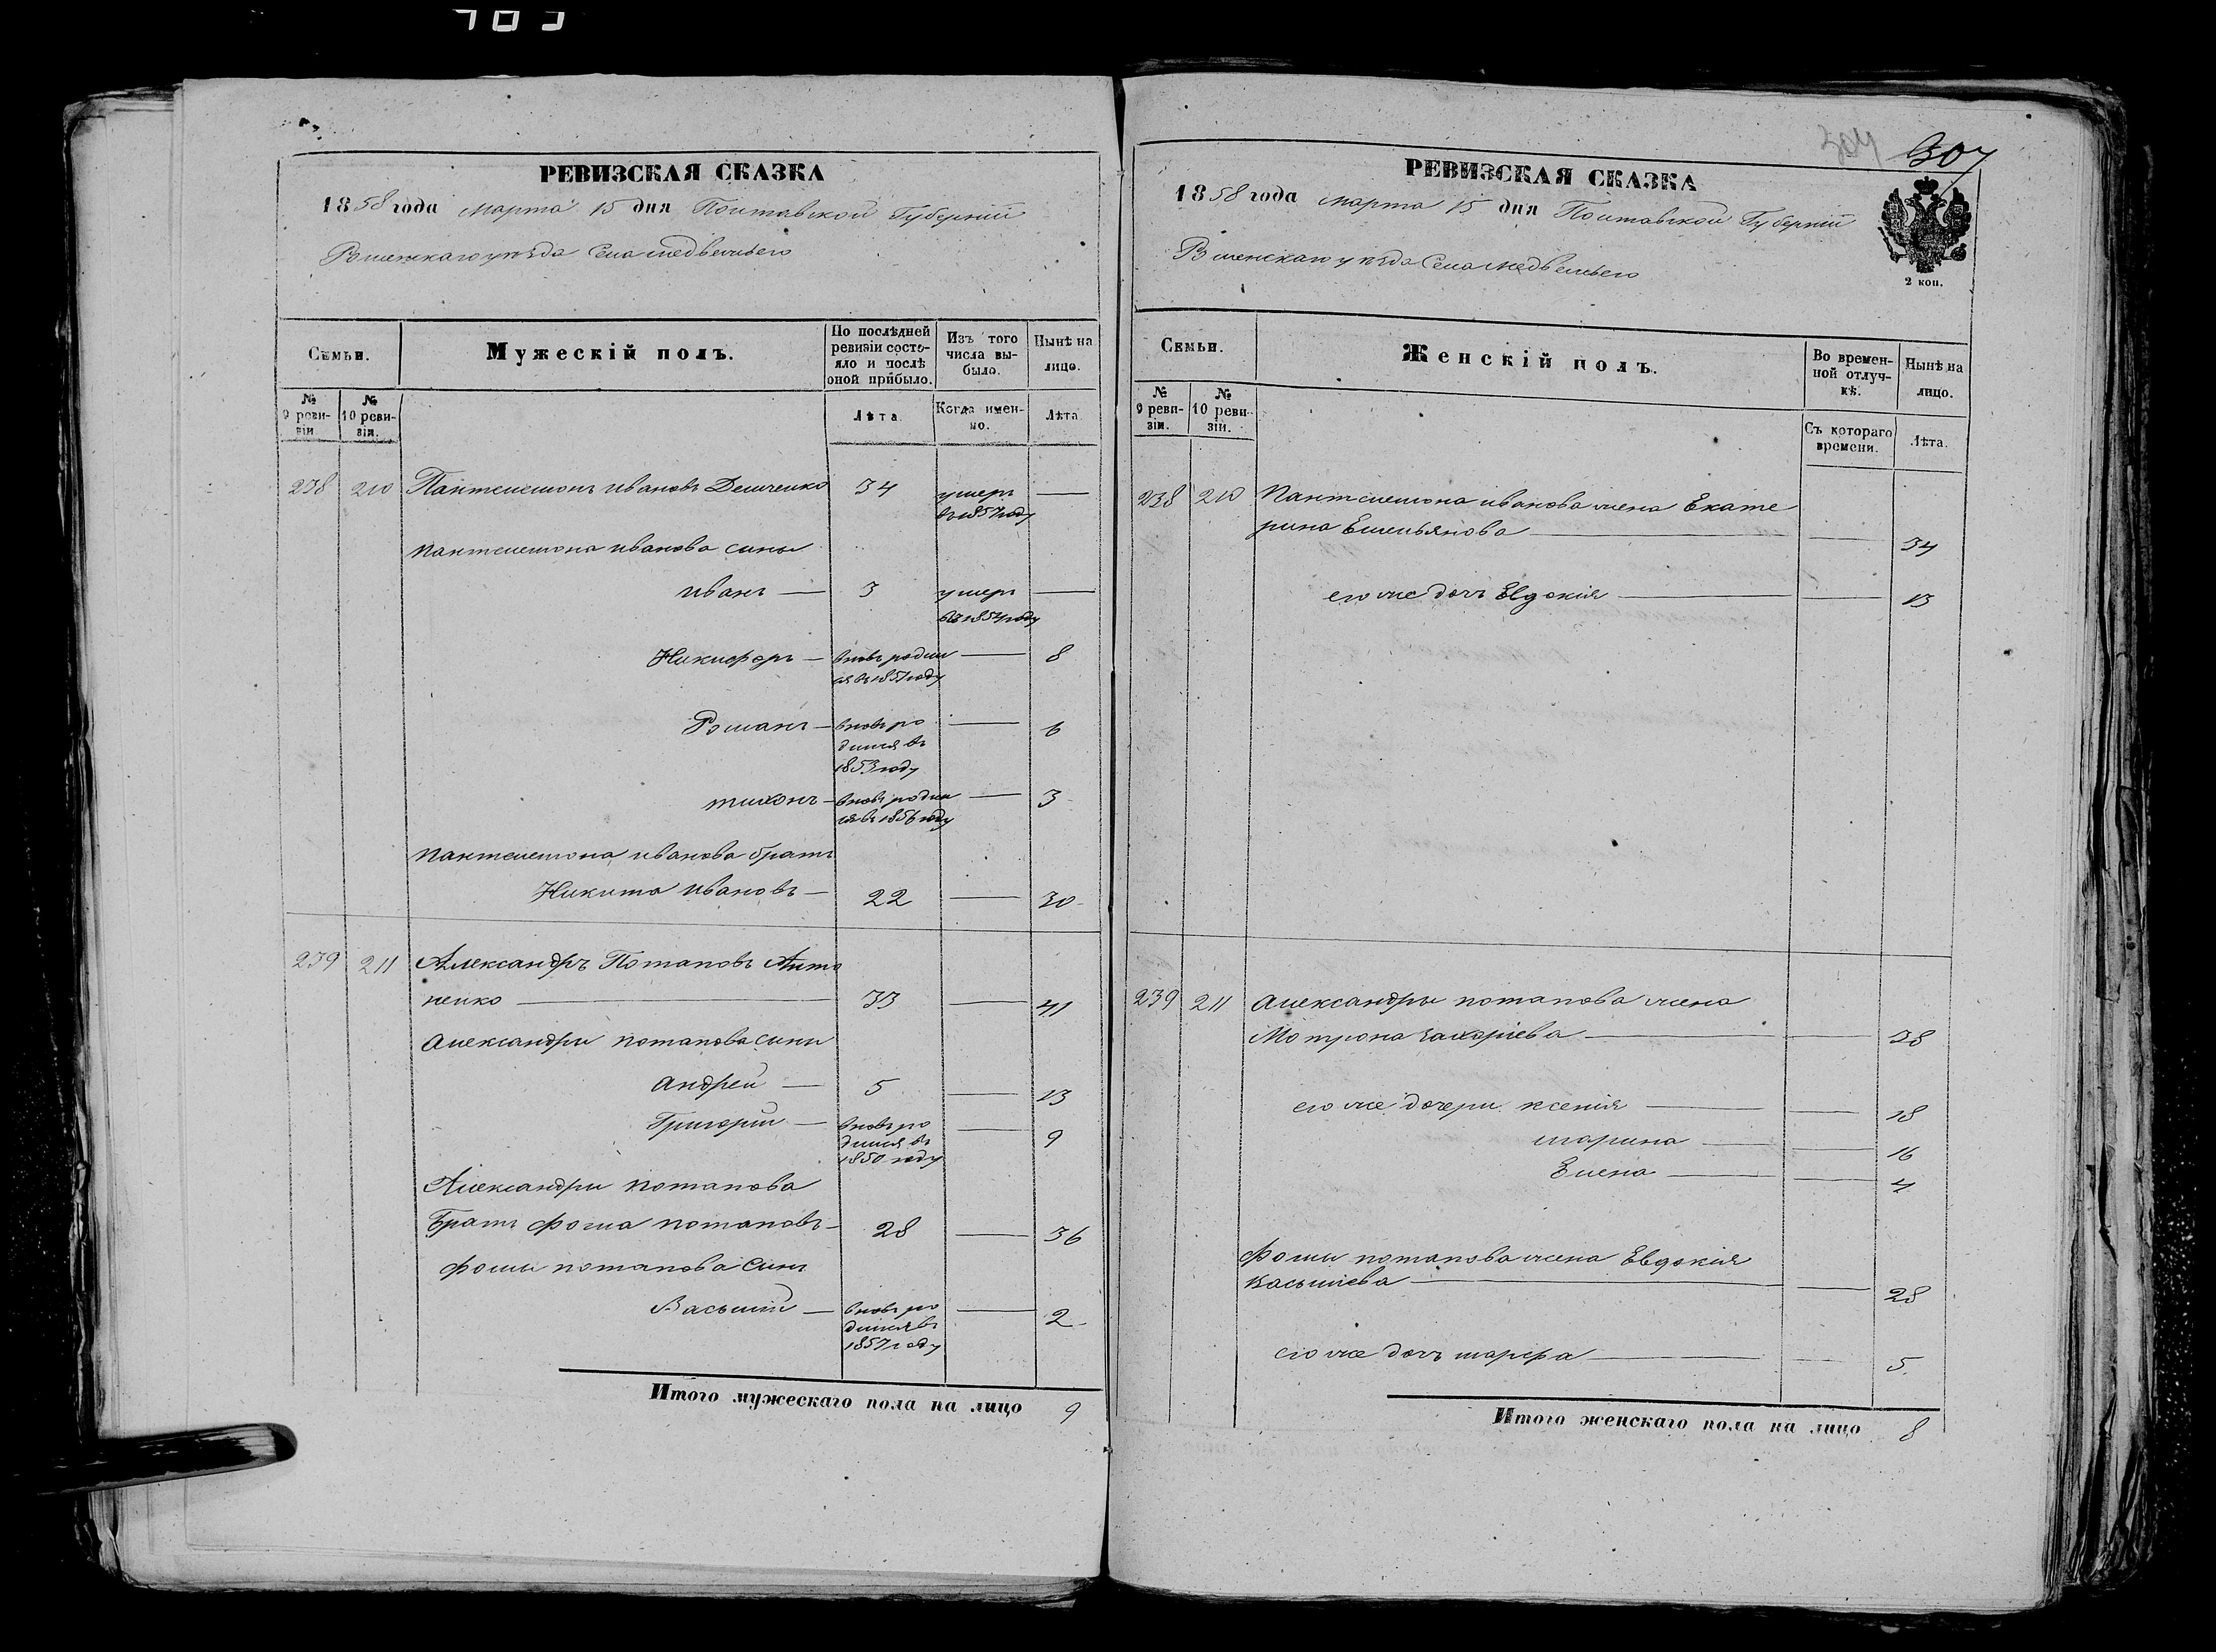 307
РЕВИЗСКАЯ СКАЗКА
1858 года марта 15 дня Полтавской Губернiи
Роменскаго уѣзда Села медвежьего
Семьи.
Мужескiй полъ.
По послѣдней ревизiи состояло и послѣ оной прибыло.
Изъ того числа выбыло.
Нынѣ на лицо.
№ 9 ревизiи
№ 10 ревизiи.
Лѣта
Когда именно.
Лѣта
238 210 Пантелемонъ ивановъ Демченко 34 умеръ въ 1857 году —
пантелемона иванова сины
иванъ — 3 умеръ въ 1854 году —
Никифоръ — вновь родился въ 1851 году — 8
Романъ — вновь родился въ 1853 году — 6
тихонъ — вновь родился въ 1856 году — 3
пантелемона иванова братъ
Никита ивановъ — 22 — 30
239 211 Александръ Потаповъ Анто
ненко — 33 — 41
александры потапова сини
андрей — 5 — 13
Григорiй — вновь родился въ 1850 году — 9
Александры потапова
Братъ фома потаповъ — 28 — 36
фомы потапова синъ
Василiй — вновь родился въ 1857 году — 2
Итого мужескаго пола на лицо 9
РЕВИЗСКАЯ СКАЗКА
1858 года марта 15 дня Полтавской Губернiи
Роменскаго уѣзда Села медвежьего
2 коп.
Семьи.
Женскiй полъ.
Во временной отлучкѣ.
Нынѣ на лицо.
№ 9 ревизiи.
№ 10 ревизiи.
Съ котораго времени.
Лѣта.
238 210 пантелемона иванова жена Екате
рина Емельянова — — 34
его же дочь Евдокiя — — 13
239 211 александры потапова жена
Мотрона захарiева — — 38
его же дочери ксенiя — — 18
марина — — 16
Елена — — 4
фомы потапова жена Евдокiя
василiева — — 28
его же дочь марфа — — 5
Итого женскаго пола на лицо 8